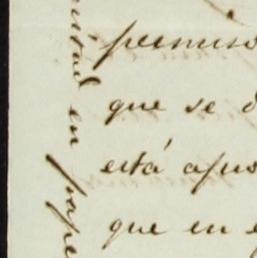 permiso
que se d
está ajus
que en e
en pape